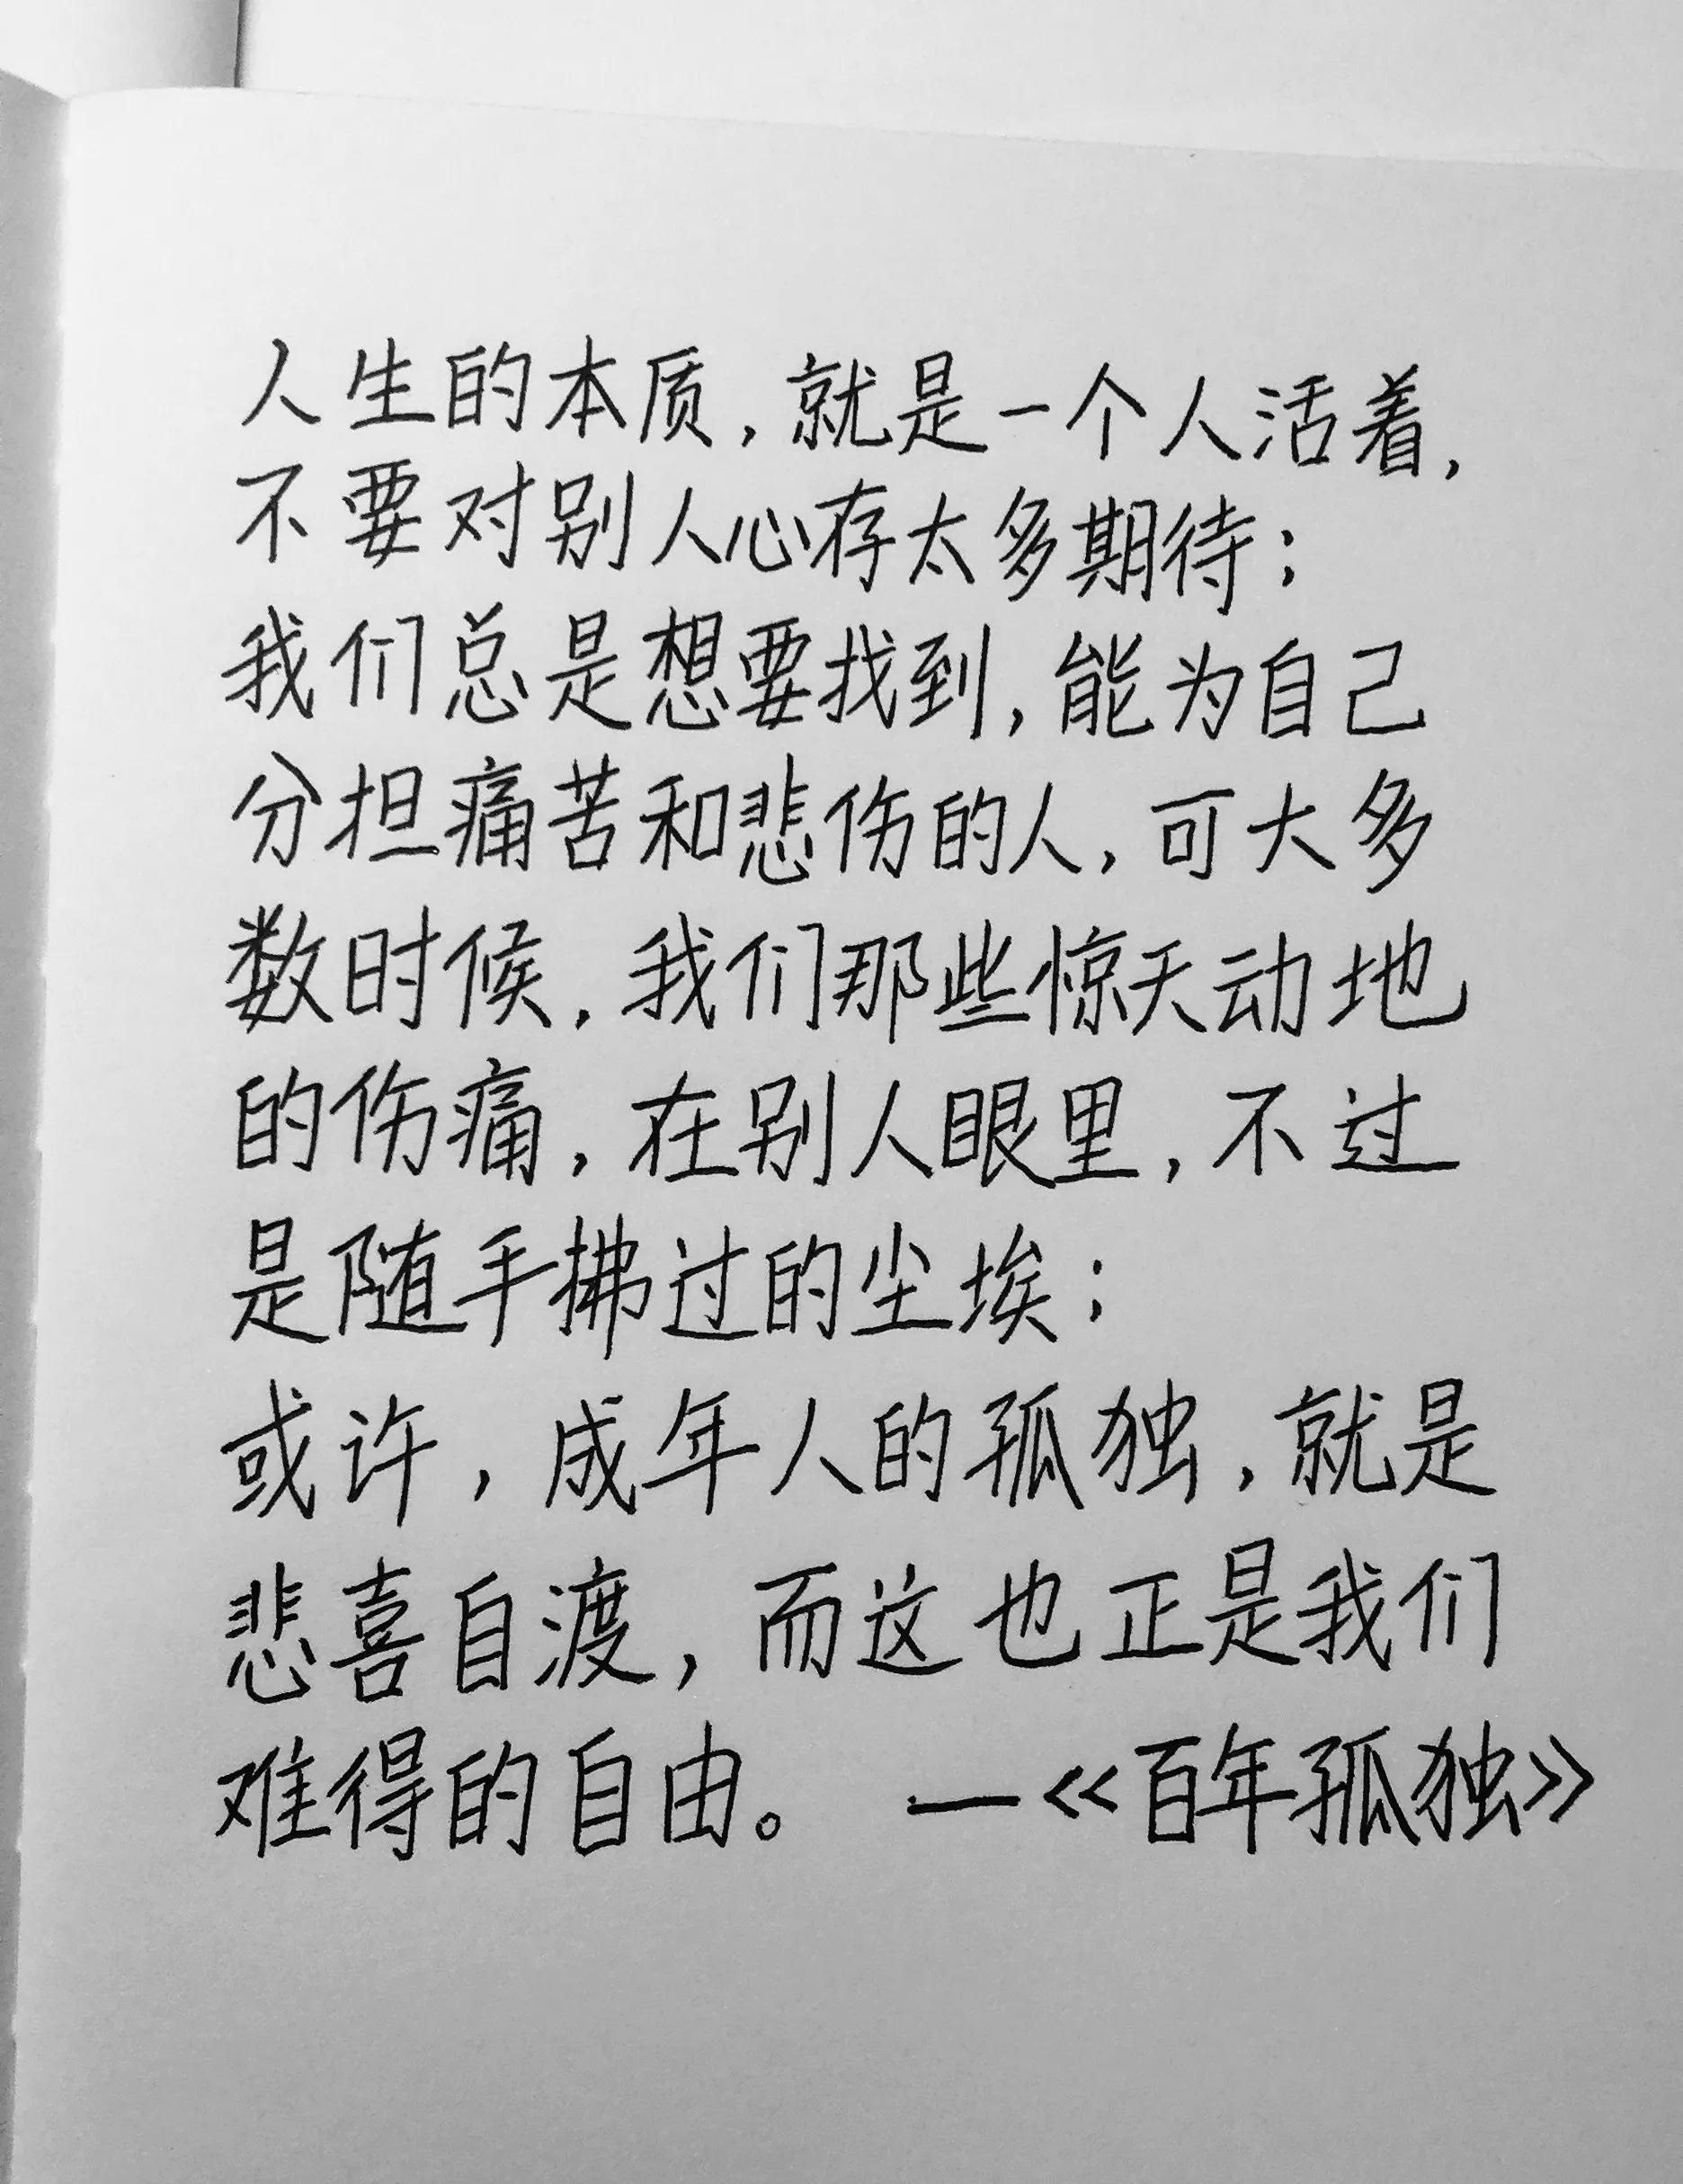 人生的本质，就是一个人活着，
不要对别人心存太多期待；
我们总是想要找到，能为自己
分担痛苦和悲伤的人，可大多
数时候，我们那些惊天动地
的伤痛，在别人眼里，不过
是随手拂过的尘埃；
或许，成年人的孤独，就是
悲喜自渡，而这也正是我们
难得的自由。 —《百年孤独》